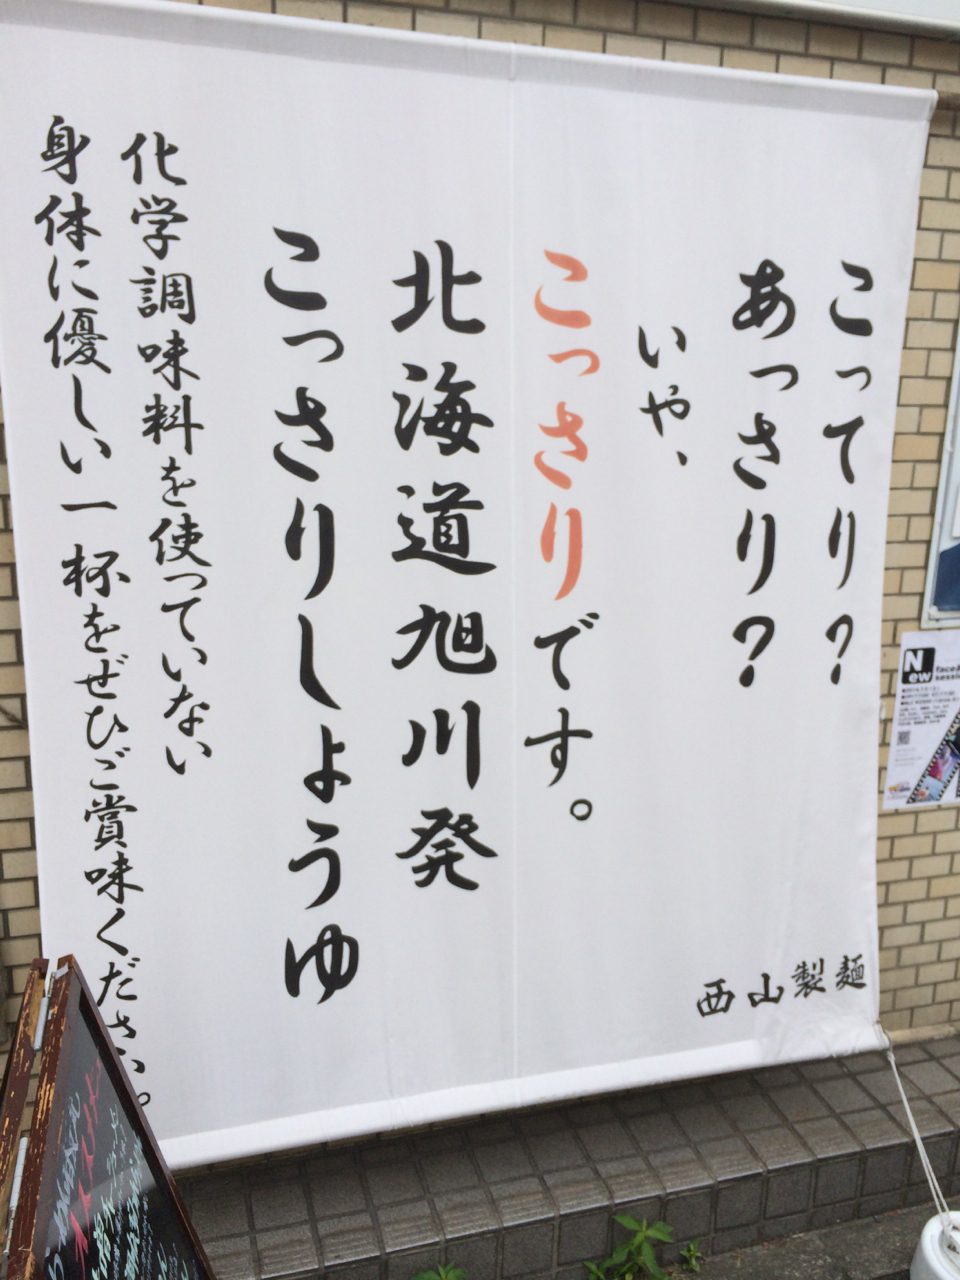 こってり?
あっさり?
いや、
こっさりです。
北海道旭川発
こっさりしょうゆ
化学調味料を使っていない
身体に優しい一杯をぜひご賞味ください。
西山製麺
New